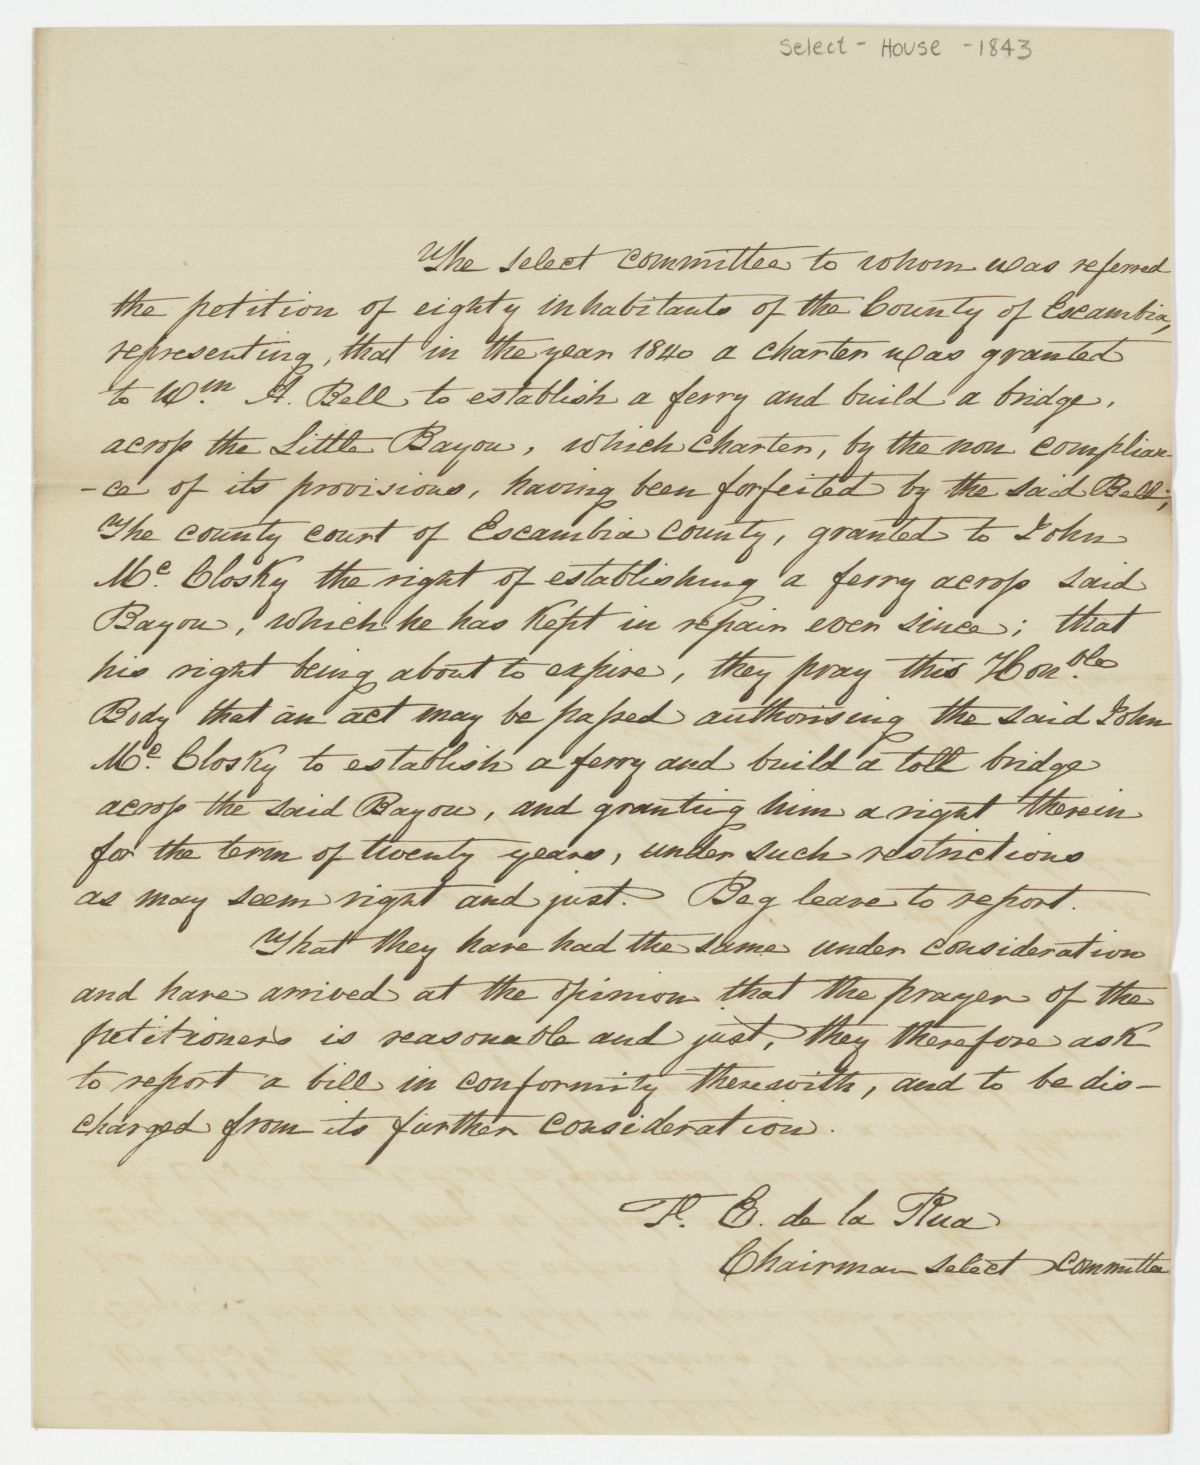 Select - House - 1843
The select committee to whom was referred
the petition of eighty inhabitants of the County of Escambia,
representing, that in the year 1840 a charter was granted
to Wm. A. Bell to establish a ferry and build a bridge,
across the Little Bayou, which charter, by the non complian-
-ce of its provisions, having been forfeited by the said Bell;
The county court of Escambia county, granted to John
Mc. Closky the right of establishing a ferry across said
Bayou, which he has kept in repair ever since; that
his right being about to expire, they pray this Honble.
Body that an act may be passed authorising the said John
Mc. Closky to establish a ferry and build a toll bridge
across the said Bayou, and granting him a right therein
for the term of twenty years, under such restrictions
as may seem right and just. Beg leave to report.
That they have had the same under consideration
and have arrived at the opinion that the prayer of the
petitioners is reasonable and just, they therefore ask
to report a bill in conformity therewith, and to be dis-
charged from its further consideration.
F. E. de la Rua
Chairman select committee